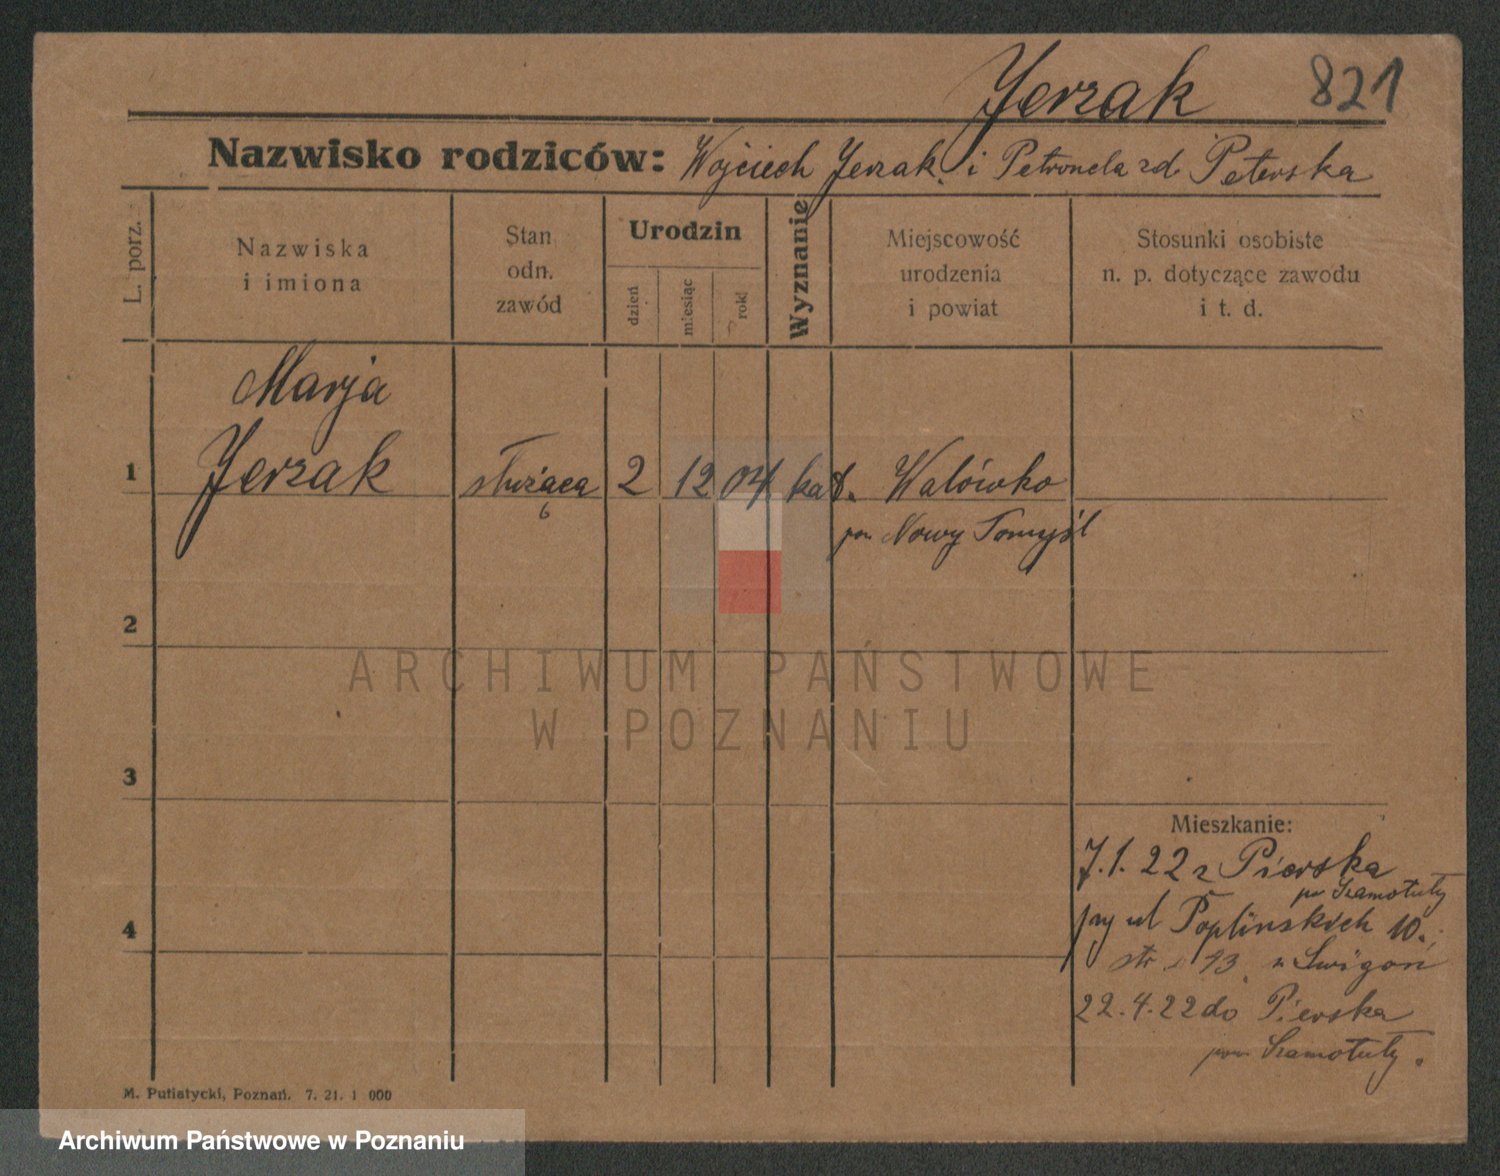 Jerzak 821
Nazwisko rodziców: Wojciech Jerzak i Petronela zd. Peterska
L. porz.
Nazwiska
i imiona
Stan
odn.
zawód
Urodzin
dzień
miesiąc
rok
Wyznanie
Miejscowość
urodzenia
i powiat
Stosunki osobiste
n. p. dotyczące zawodu
i t. d.
Marja
1 Jerzak służąca 2 12 04 kat. Walówko
pow Nowy Tomyśl
2
3
4
Mieszkanie:
7.1.22 z Pierska
pow Szamotuły
przy ul Poplinskich 10.
str 13
22.4.22 do Pierska
pow Szamotuły.
M. Putiatycki, Poznań. 7. 21. 1 000
ARCHIWUM PAŃSTWOWE
W POZNANIU
Archiwum Państwowe w Poznaniu